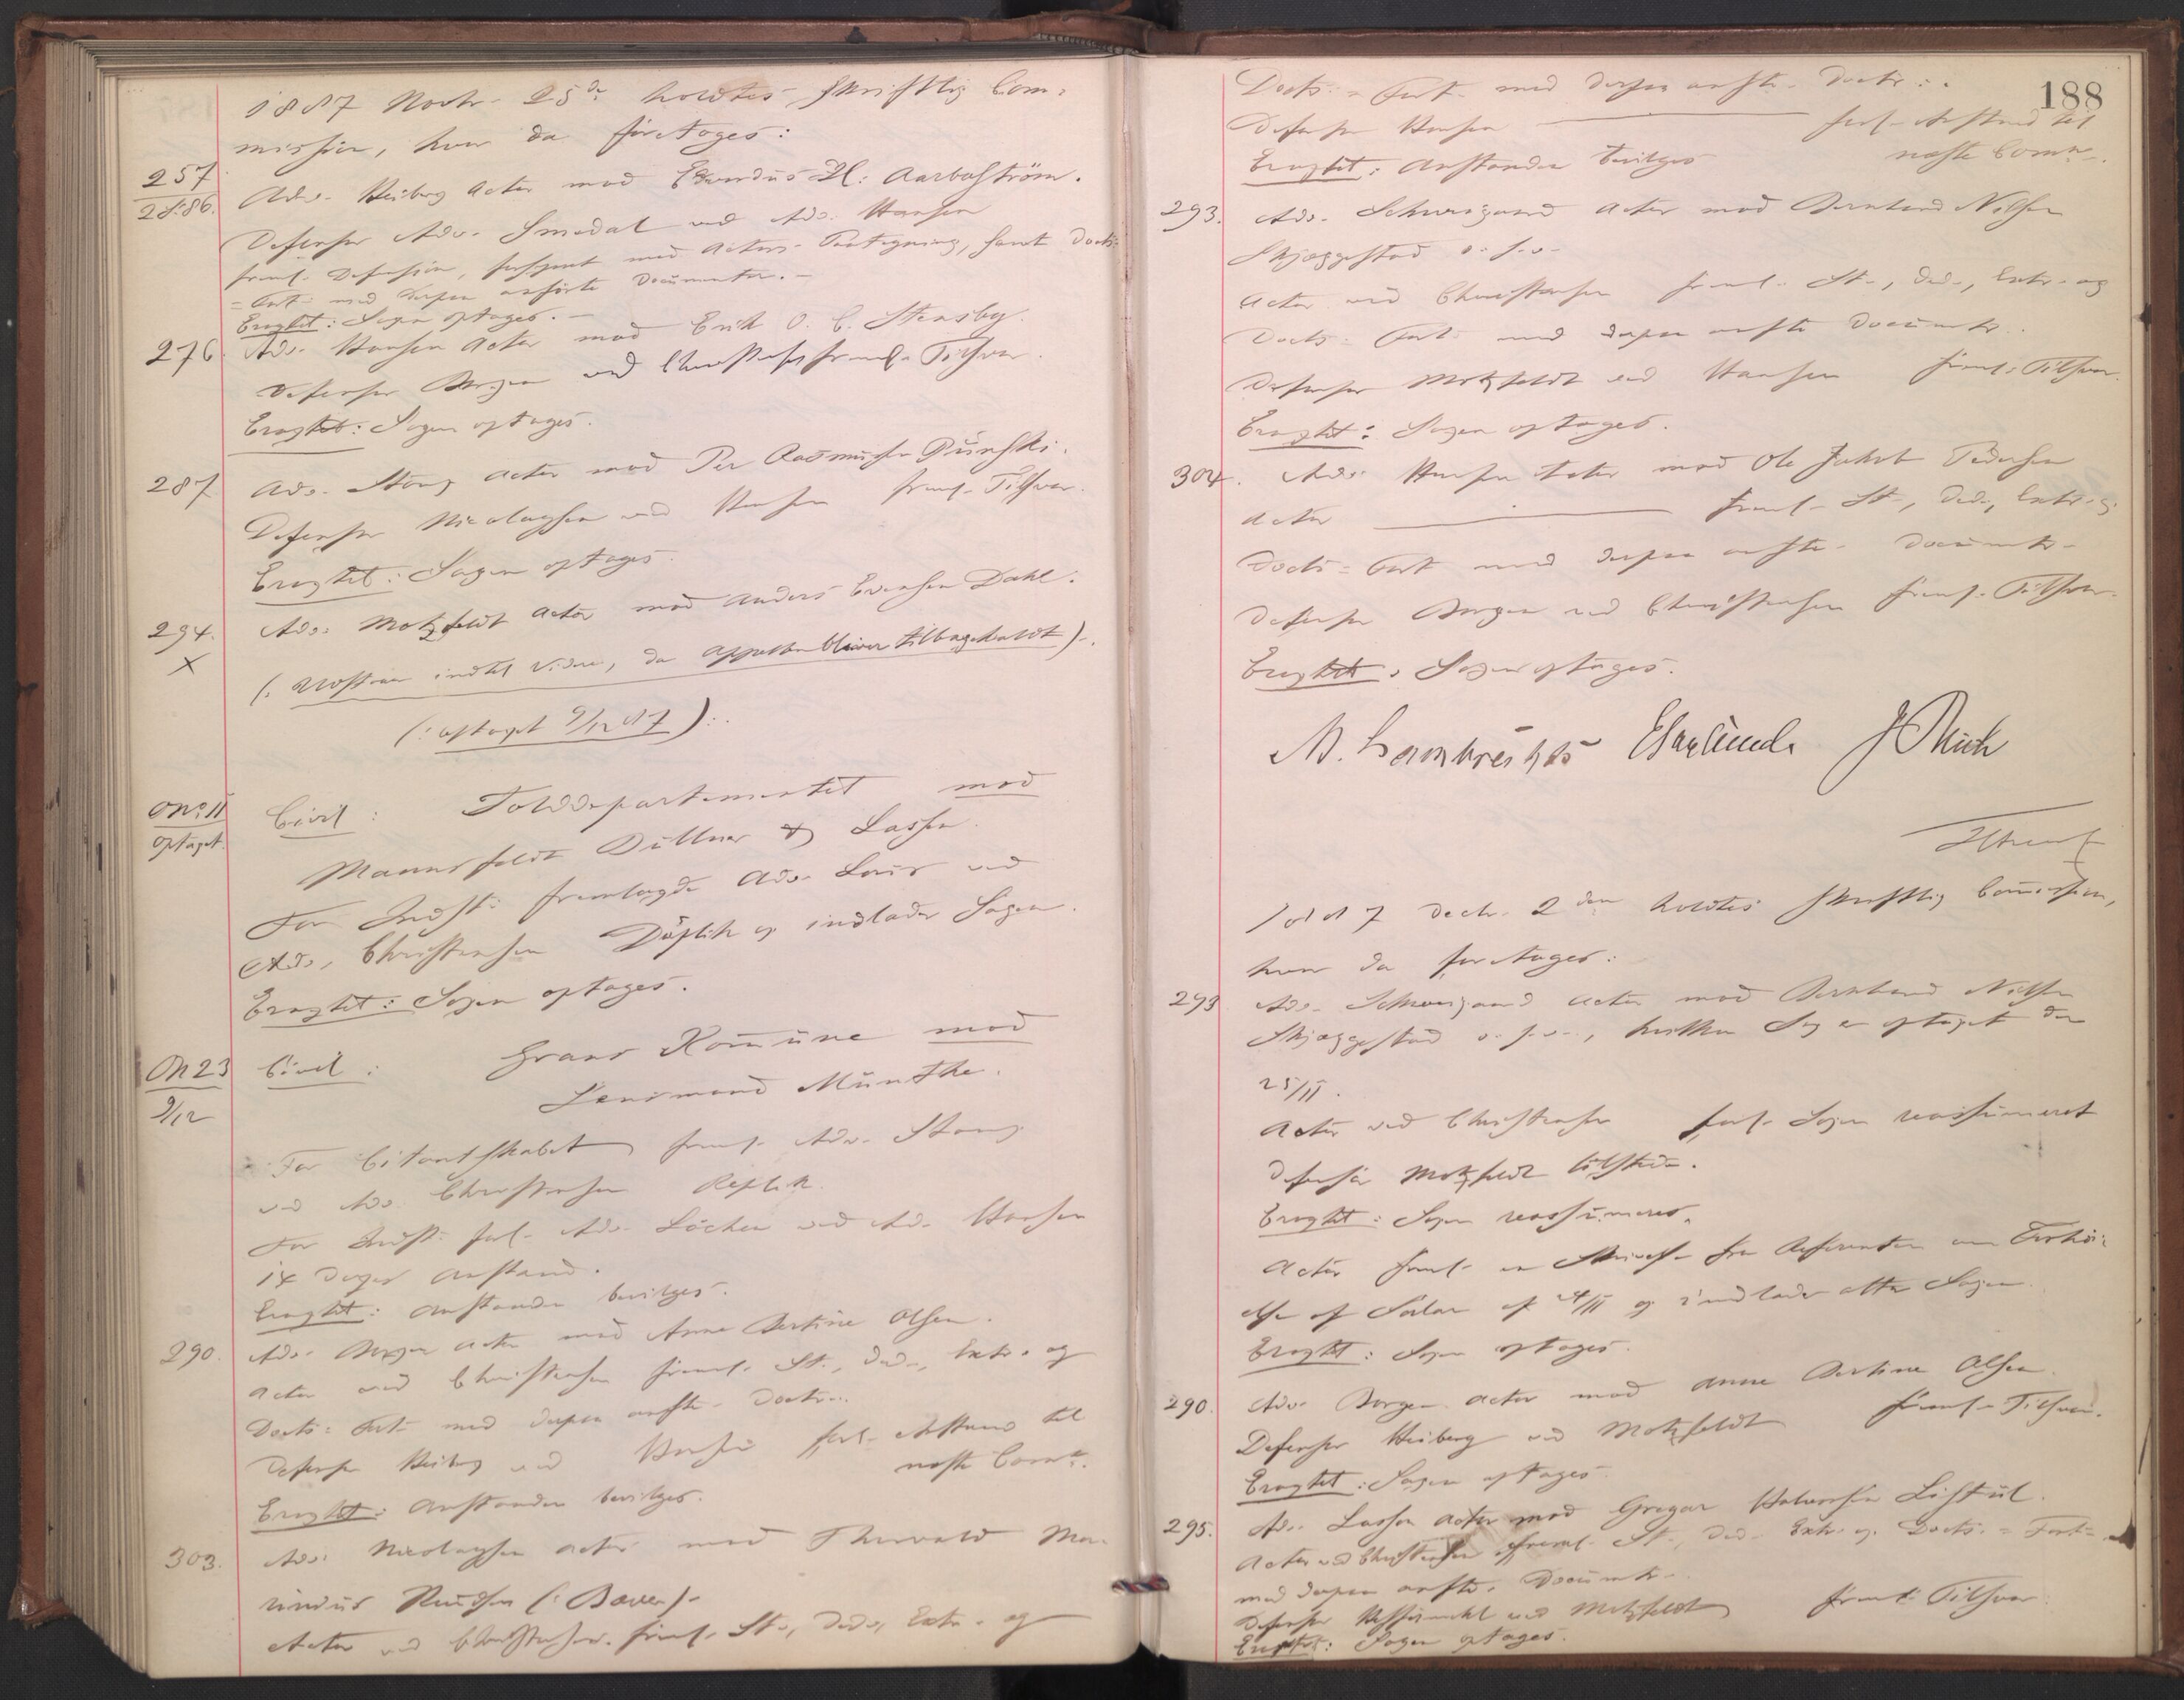 1887 Novbr. 25de holdtes skriftlig Com-
mission, hvor da foretoges:
257
2 S. 86.
Adv. Heiberg Actor mod Edvardus H: Aarboström.
Defensor Adv. Smedal ved Adv. Hansen
freml. Defension, forsynet med Actors Paategning, samt Docts
= Fort. med derpaa anførte Documenter.
Eragtet: Sagen optages.
276. Adv. Hansen Actor mod Erik O. C. Stensby.
Defensor Bergen ved Christensen freml. Tilsvar.
Eragtet: Sagen optages.
287 Adv. Stang Actor mod Per Rasmussen
Defensor Nicolaysen ved Hansen freml. Tilsvar.
Eragtet: Sagen optages.
294. Adv. Motzfeldt Actor mod Anders Evensen Dahl.
X
(: indtil videre, da Appellen bliver tilbageholdt).
(: optaget 9/12 87):
No 11
optaget.
Civil: Tolddepartementet mod
Mannsfeldt Düllner & Lassen.
For Indst: fremlagde Adv. ved
Adv. Christensen Düplik og indlader Sagen.
Eragtet: Sagen optages.
No 23
9/12
Civil: Grans Kommune mod
Lensmand Münthe.
For Citantskabet freml. Adv. Stang
ved Adv. Christensen Replik.
For Indst: forl. Adv. Löchen ved Adv. Hansen
14 Dages Anstand.
Eragtet: Anstanden bevilges.
290. Adv. Bergen Actor mod Anne Bertine Olsen.
Actor ved Christensen freml. St., Ded., Extr. og
Docts = Fort. med derpaa anførte Doctr.
Defensor Heiberg ved Hansen forl. Anstand til
næste Comn.
Eragtet: Anstanden bevilges.
303. Adv. Nicolaysen Actor mod Thorvald Ma-
rinius Knudsen (: Baver).
Actor ved Christensen freml. St., Ded., Extr. og
188
Docts = Fort. med derpaa anførte Doctr.
Defensor Hansen — forl. Anstand til
næste Comn.
Eragtet: Anstanden bevilges
293. Adv. Schweigaard Actor mod Bernhard Nilsen
Skjæggestad o. s. v.
Actor ved Christensen freml. St., Ded., Extr. og
Docts = Fort. med derpaa anførte Documtr.
Defensor Motzfeldt ved Hansen freml. Tilsvar.
Eragtet: Sagen optages.
304. Adv. Hansen Actor mod Ole Jakob Pedersen
Actor — freml. St., Ded., Extr. og
Docts = Fort. med derpaa anførte Documtr.
Defensor Bergen ved Christensen freml. Tilsvar.
Eragtet: Sagen optages.
M. Lambrechts E Saxlund J Thich
1887 Decbr. 2den holdtes skriftlig Commission,
hvor da foretoges:
293 Adv. Schweigaard Actor mod Bernhard Nilsen
Skjæggestad o. s. v., hvilken Sag er optaget den
25/11.
Actor ved Christensen forl. Sagen reassumeret
Defensor Motzfeldt tilstede.
Eragtet: Sagen reassumeres.
Actor freml. en Skrivelse fra Referenten om Forhöi-
else af Salær af 24/11 og indlader atter Sagen
Eragtet: Sagen optages.
290. Adv. Bergen Actor mod Anne Bertine Olsen
Defensor Heiberg ved Motzfeldt freml. Tilsvar.
Eragtet: Sagen optages
295. Adv. Lassen Actor mod Gregar Halvorsen Listül.
Actor ved Christensen freml. St., Ded. Extr. og Docts. = Fort.
med derpaa anførte Documtr.
Defensor ved Motzfeldt freml. Tilsvar
Eragtet: Sagen optages.